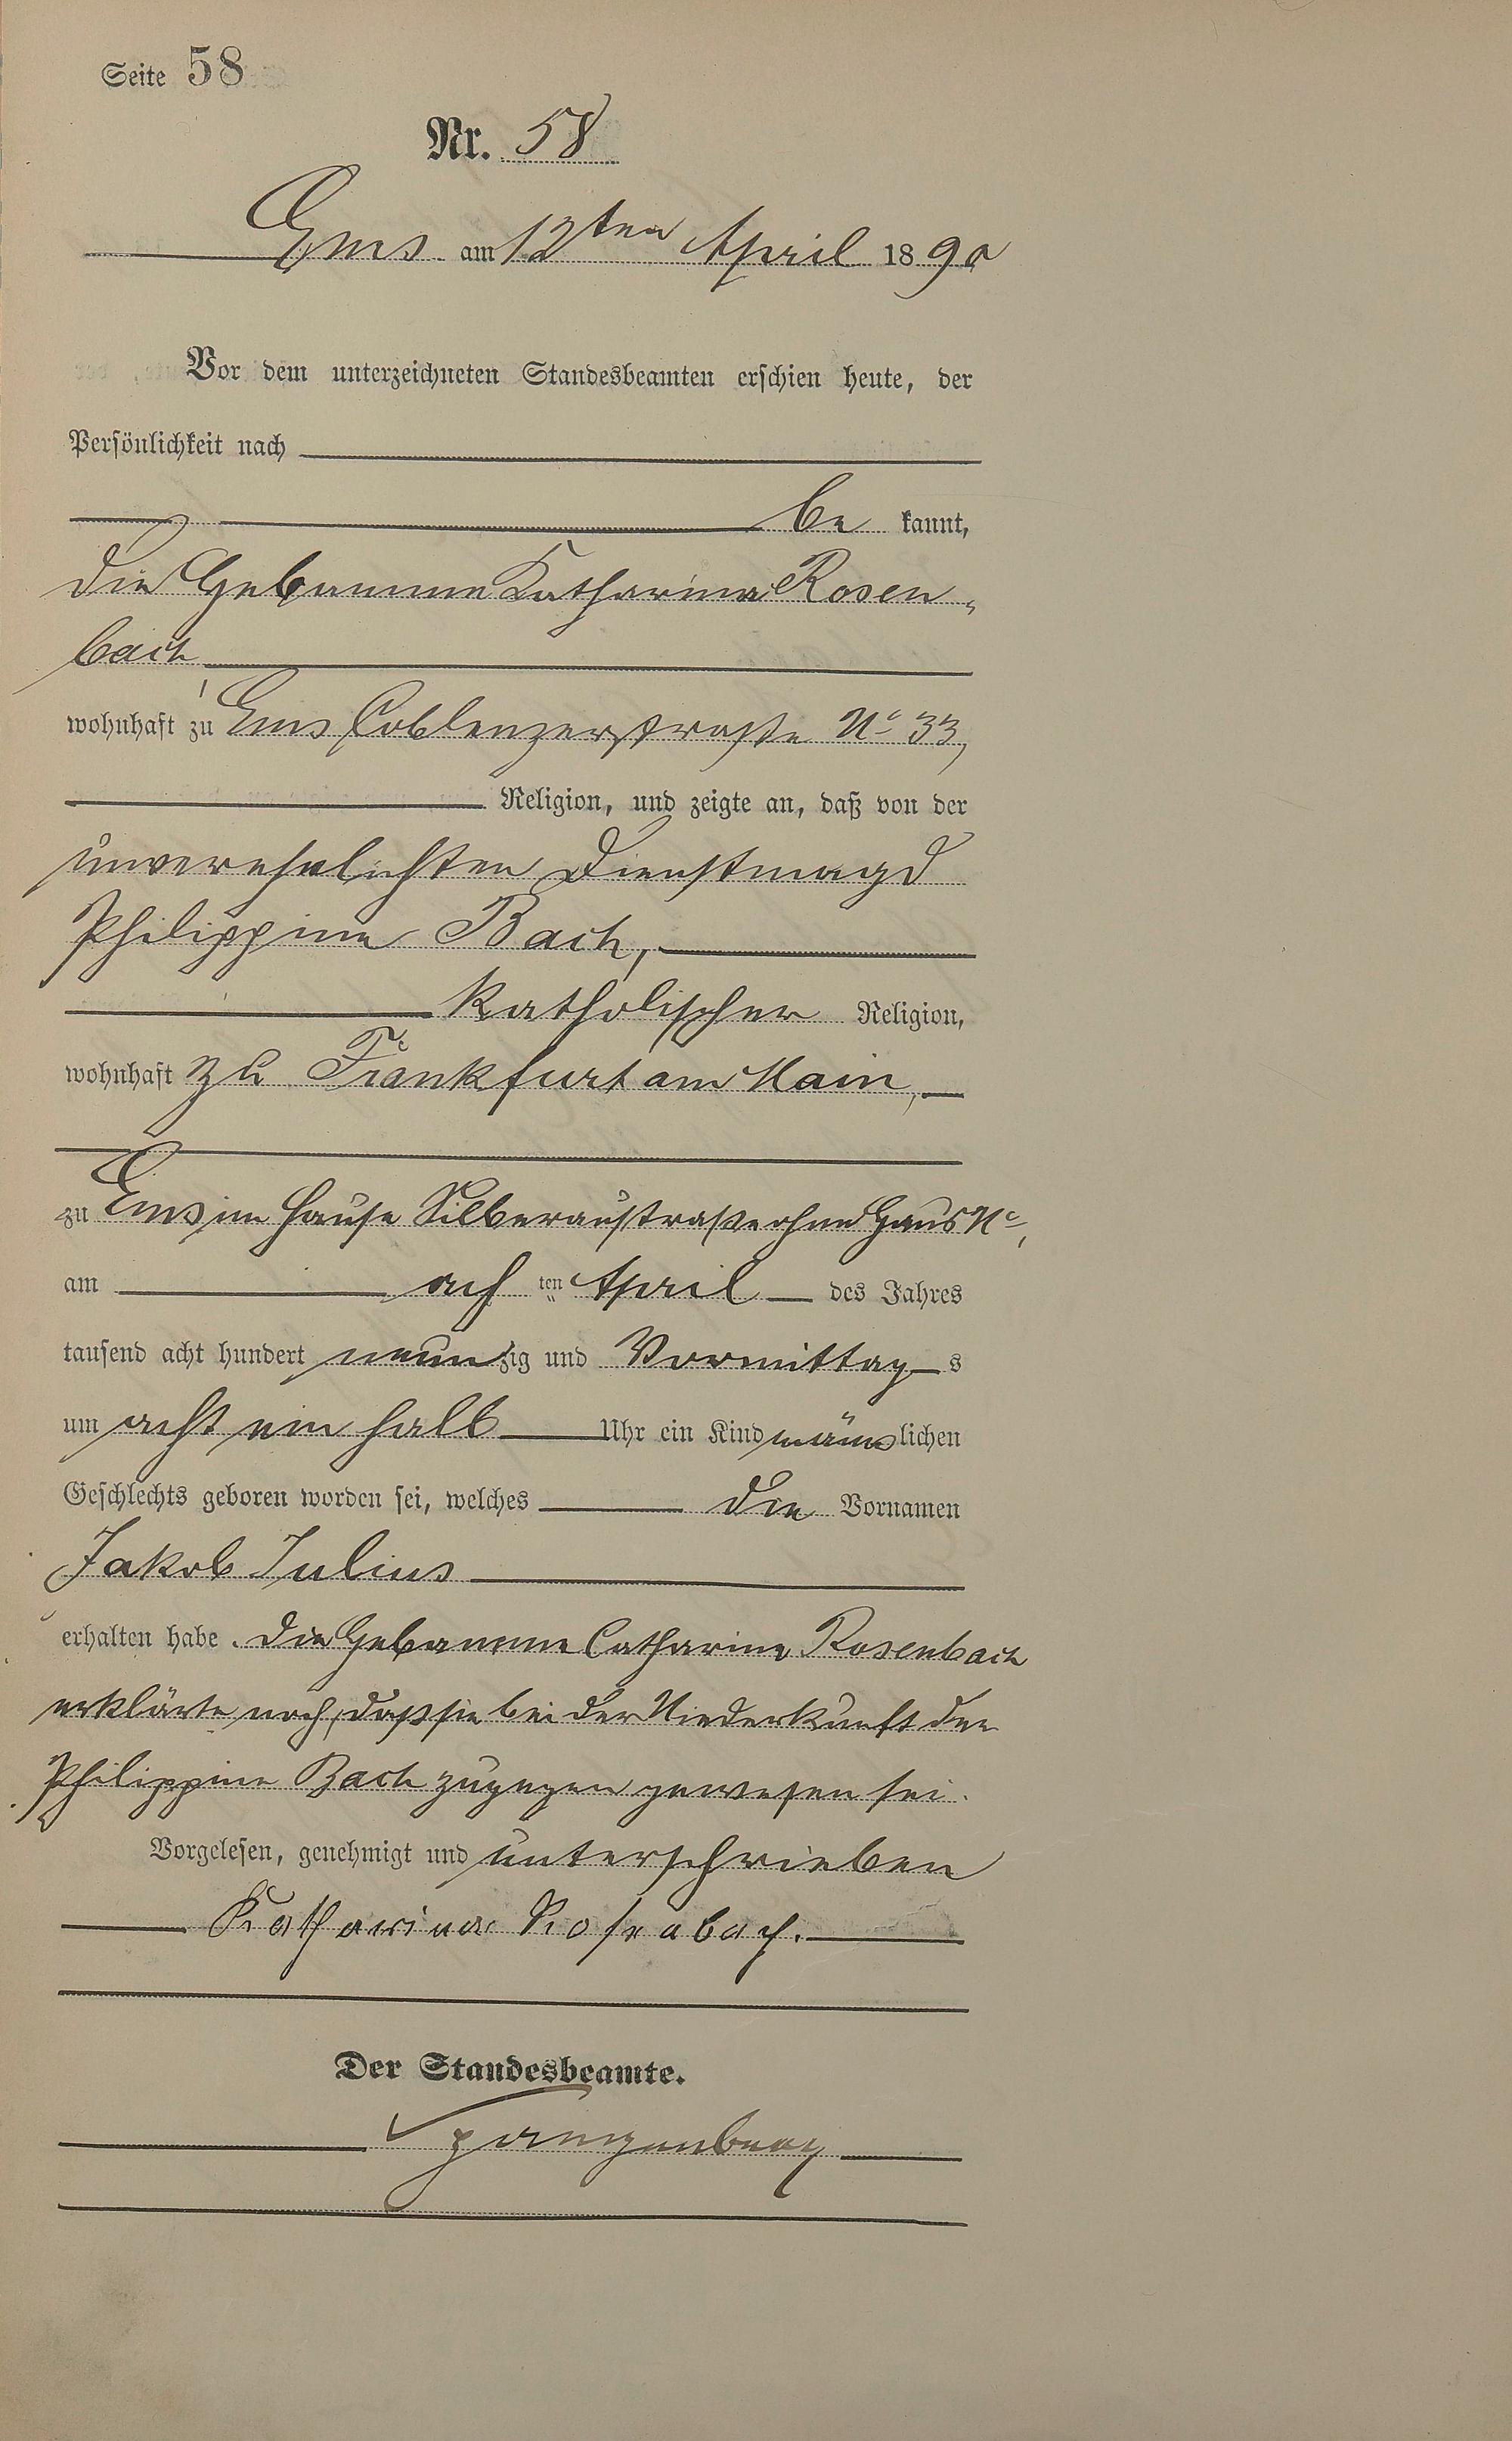 Seite 58
Nr. 58
Ems am 12ten April 1890
Vor dem unterzeichneten Standesbeamten erschien heute, der
Persönlichkeit nach
be kannt,
die Hebamme Katharina Rosen-
bach,
wohnhaft zu Ems Coblenzerstraße No 33,
Religion, und zeigte an, daß von der
unverehelichten Dienstmagd
Philippine Bach,
katholischer Religion,
wohnhaft zu Frankfurt am Main,
zu Ems im Hause Silberaustraße ohne Haus No,
am achten April des Jahres
tausend acht hundert neunzig und Vormittags
um acht ein halb Uhr ein Kind männlichen
Geschlechts geboren worden sei, welches die Vornamen
Jakob Julius
erhalten habe. Die Hebamme Catharina Rosenbach
erklärte noch, daß sie bei der Niederkunft der
Philippine Bach zugegen gewesen sei.
Vorgelesen, genehmigt und unterschrieben
Katharina Rosenbach.
Der Standesbeamte.
Spangenberg